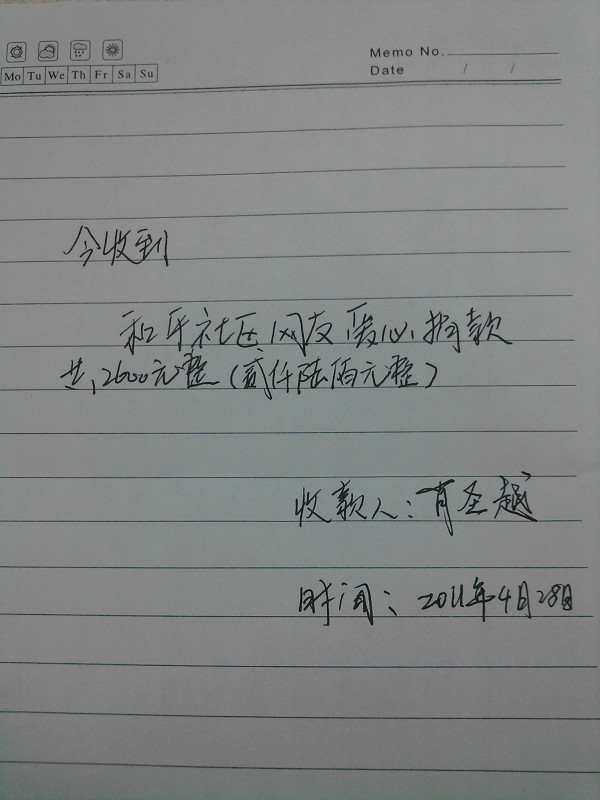 Memo No.
Date / /
Mo Tu We Th Fr Sa Su
今收到
和平社区网友爱心捐款
共,2600元整(贰仟陆佰元整)
收款人:肖圣越
时间:2011年4月28日